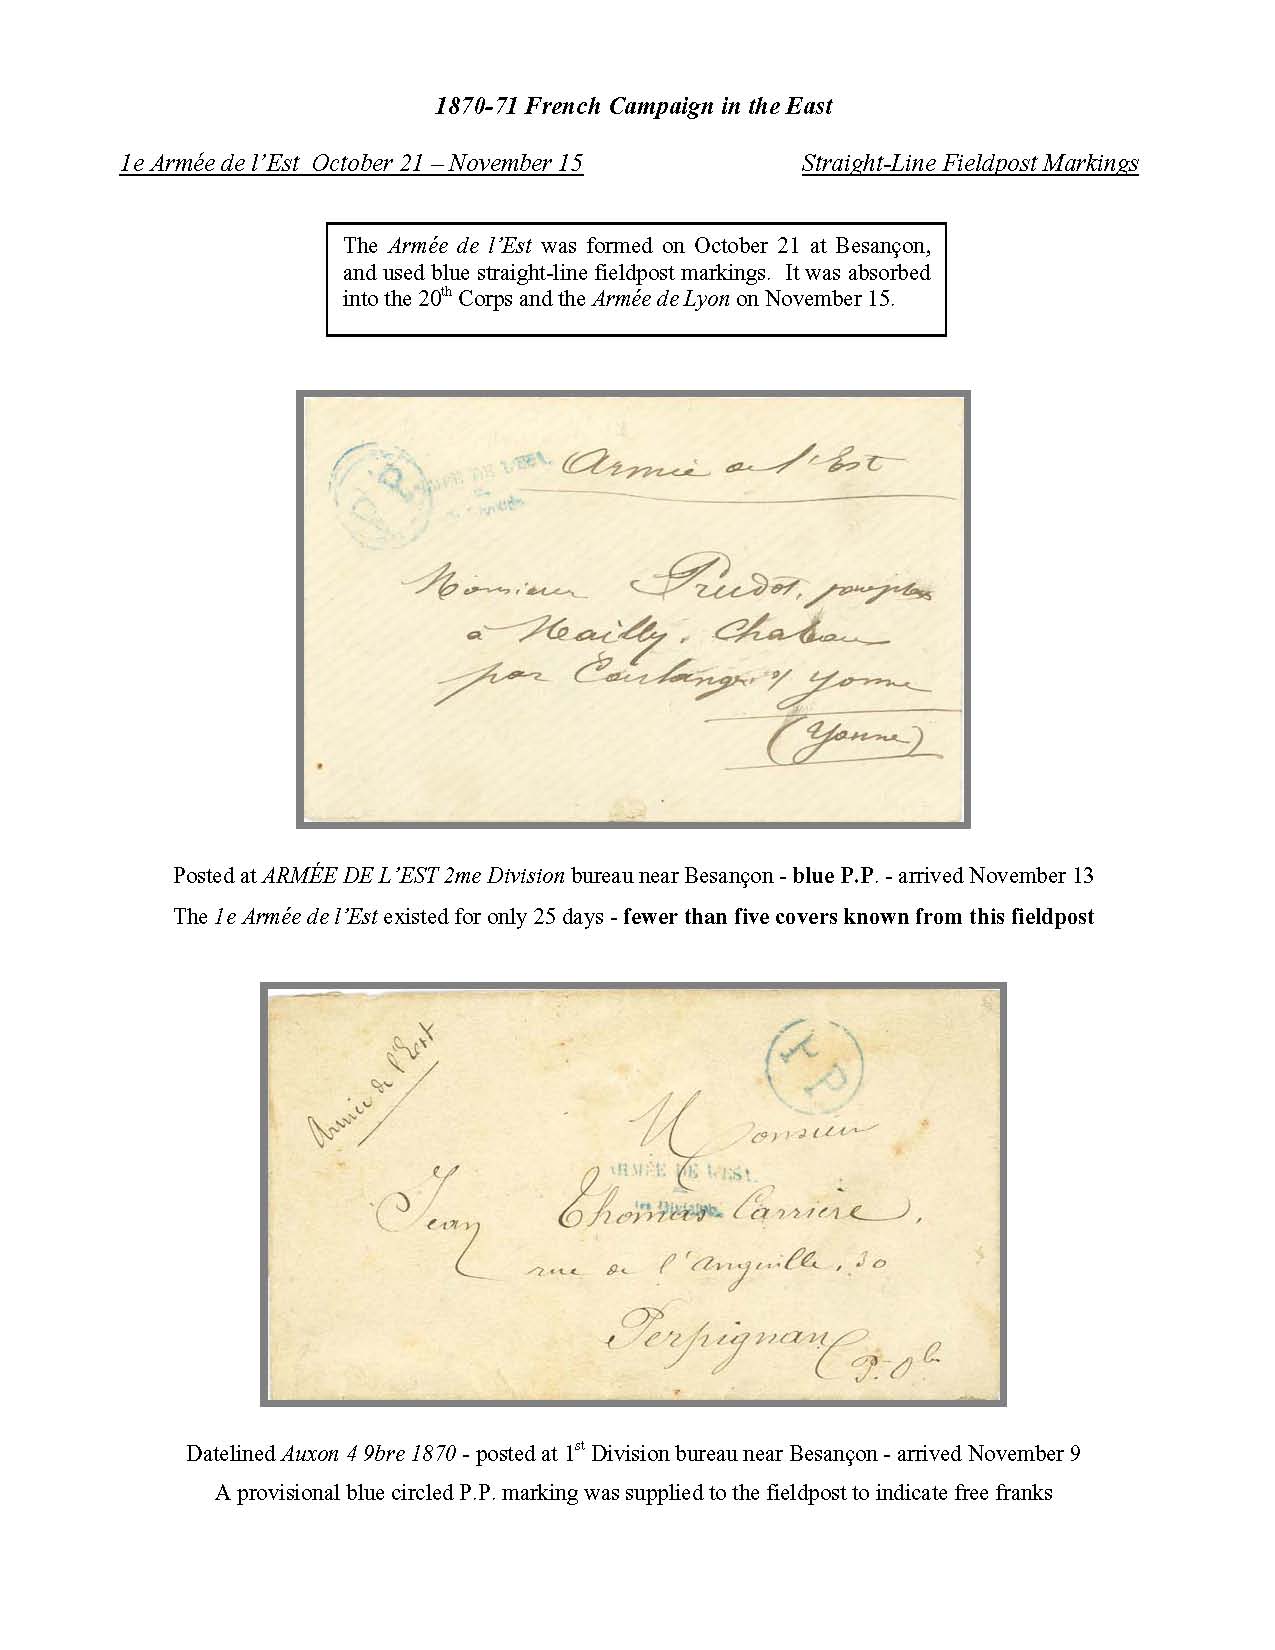 1870-71 French Campaign in the East
1e Armée de l’Est  October 21 – November 15
Straight-Line Fieldpost Markings
The Armée de l’Est was formed on October 21 at Besançon,
and used blue straight-line fieldpost markings.  It was absorbed
into the 20th Corps and the Armée de Lyon on November 15.
Armée de l'Est
P P
DE L'EST.
Monsieur Prudot,
à Mailly, Chateau
par Coulanges s/ Yonne
(Yonne)
Posted at ARMÉE DE L’EST 2me Division bureau near Besançon - blue P.P. - arrived November 13
The 1e Armée de l’Est existed for only 25 days - fewer than five covers known from this fieldpost
Armée de l'Est
P P
Monsieur
ARMÉE DE L'EST.
1re Division.
Jean Thomas Carrière,
rue de l'Anguille, 30
Perpignan
P. Oles
Datelined Auxon 4 9bre 1870 - posted at 1st Division bureau near Besançon - arrived November 9
A provisional blue circled P.P. marking was supplied to the fieldpost to indicate free franks